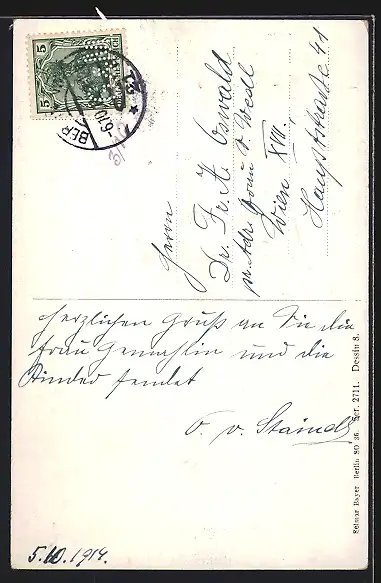 Herrn
Dr. Fr. K. Oswald
Wien XVIII.
Hauptstraße 41
Herzlichen Gruß an Sie die
Frau Gemahlin und die
Kinder sendet
O. v. Staindl
5.10.1914.
Selmar Bayer Berlin SO 36. Ser. 2711. Dessin 8.
5
5